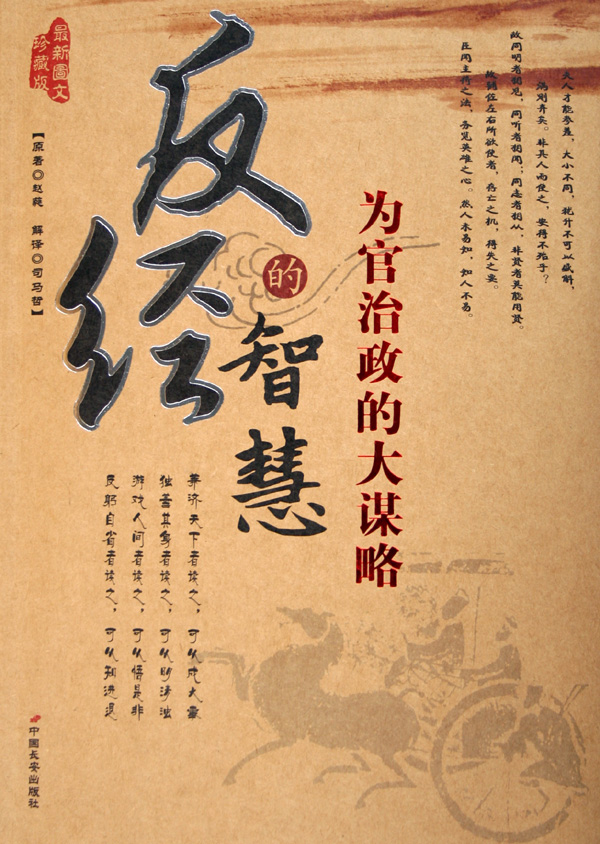 最新圖文
珍藏版
反经
的
智慧
为官治政的大谋略
【原著◎赵蕤 解译◎司马哲】
夫人才能参差，大小不同，犹升不可以盛斛，
满则弃矣。非其人而使之，安得不殆乎？
故同明者相见，同听者相闻；同志者相从，非贤者莫能用贤。
故辅佐左右所欲使者，存亡之机，得失之要。
臣闻主将之法，务览英雄之心。然人未易知，知人不易。
兼济天下者读之，可以成大業
独善其身者读之，可以明清浊
游戏人间者读之，可以悟是非
反躬自省者读之，可以知进退
中国长安出版社